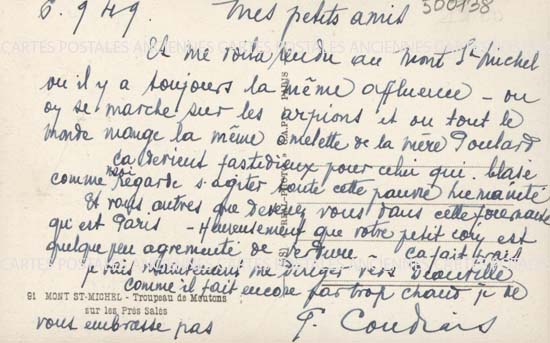 6.9.49. Mes petits amis 500138
Et me voilà rendu au Mont St Michel
où il y a toujours la même affluence - où
on se marche sur les arpions et où tout le
monde mange la même omelette de la mère Poulard
ça devient fastidieux pour celui qui, blasé
comme moi Regarde s'agiter toute cette pauvre humanité
Et vous autres que devenez vous dans cette
qu'est Paris - Heureusement que votre petit coin est
quelque peu agrémenté de verdure. ça fait
je vais maintenant me diriger vers Deauville
Comme il fait encore par trop chaud je ne
91 MONT ST-MICHEL - Troupeau de Moutons
sur les Prés Salés
vous embrasse pas
CARTES POSTALES ANCIENNES